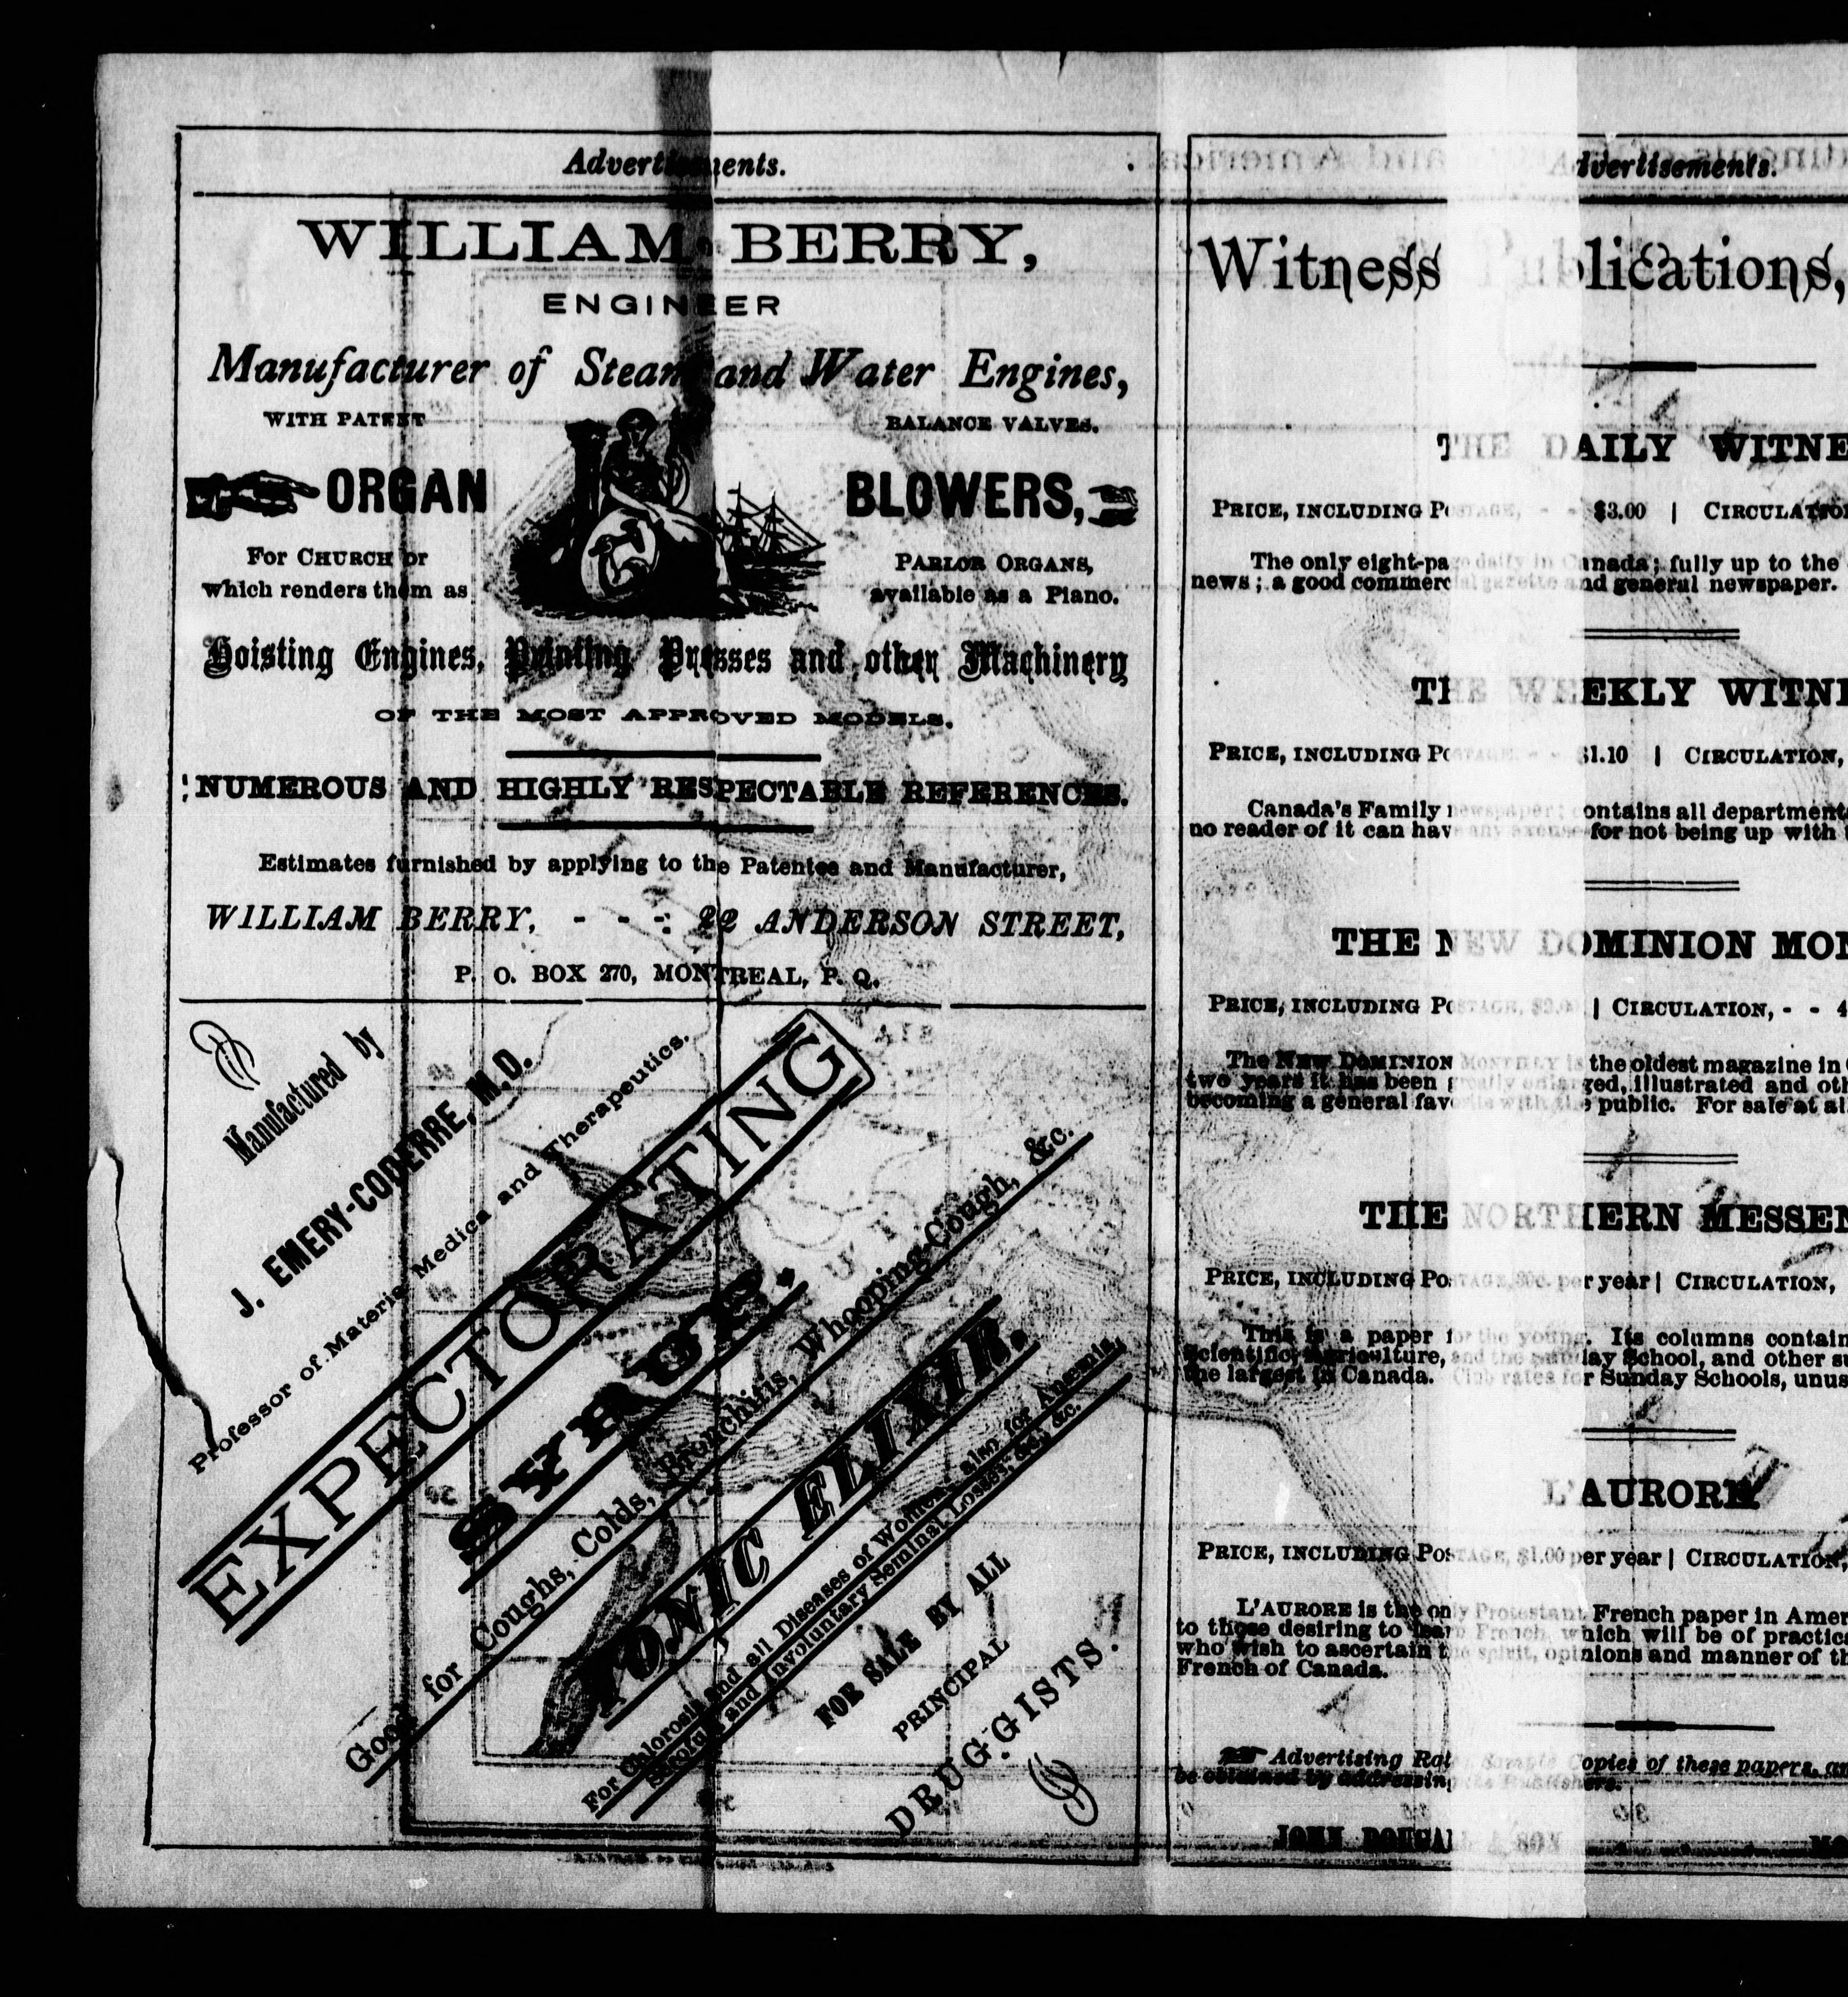 Advertisements.
WILLIAM BERRY,
ENGINEER
Manufacturer of Steam and Water Engines,
WITH PATENT BALANCE VALVES.
ORGAN BLOWERS,
For CHURCH or PARLOR ORGANS,
which renders them as available as a Piano.
Hoisting Engines, Printing Presses and other Machinery
OF THE MOST APPROVED MODELS.
NUMEROUS AND HIGHLY RESPECTABLE REFERENCES.
Estimates furnished by applying to the Patentee and Manufacturer,
WILLIAM BERRY, - - - 22 ANDERSON STREET,
P. O. BOX 270, MONTREAL, P. Q.
Manufactured by
J. EMERY-CODERRE, M.D.
Professor of Materia Medica and Therapeutics.
EXPECTORATING
SYRUP.
Good for Coughs, Colds, Bronchitis, Whooping-Cough, &c.
TONIC ELIXIR.
For Chlorosis and all Diseases of Women, also for Anæmia,
Scrofula and Involuntary Seminal Losses, &c., &c.
FOR SALE BY ALL
PRINCIPAL
DRUGGISTS.
dvertisements.
Witness Publications,
THE DAILY WITNE
PRICE, INCLUDING POSTAGE, - - $3.00 | CIRCULATION
The only eight-page daily in Canada; fully up to the
news; a good commercial gazette and general newspaper.
THE WEEKLY WITNE
PRICE, INCLUDING POSTAGE - - $1.10 | CIRCULATION,
Canada's Family newspaper; contains all department
no reader of it can have any excuse for not being up with
THE NEW DOMINION MON
PRICE, INCLUDING POSTAGE, $2.00 | CIRCULATION, - - 4
The NEW DOMINION MONTHLY is the oldest magazine in
two years it has been greatly enlarged, illustrated and oth
becoming a general favorite with the public. For sale at al
THE NORTHERN MESSEN
PRICE, INCLUDING POSTAGE, 30c. per year | CIRCULATION,
This is a paper for the young. Its columns contain
Scientific, Agriculture, and the Sunday School, and other su
the largest in Canada. Club rates for Sunday Schools, unus
L'AURORE
PRICE, INCLUDING POSTAGE, $1.00 per year | CIRCULATION,
L'AURORE is the only Protestant French paper in Amer
to those desiring to learn French, which will be of practica
who wish to ascertain the spirit, opinions and manner of th
French of Canada.
Advertising Rates, Sample Copies of these papers, an
be obtained by addressing the Publishers.
JOHN DOUGALL & SON